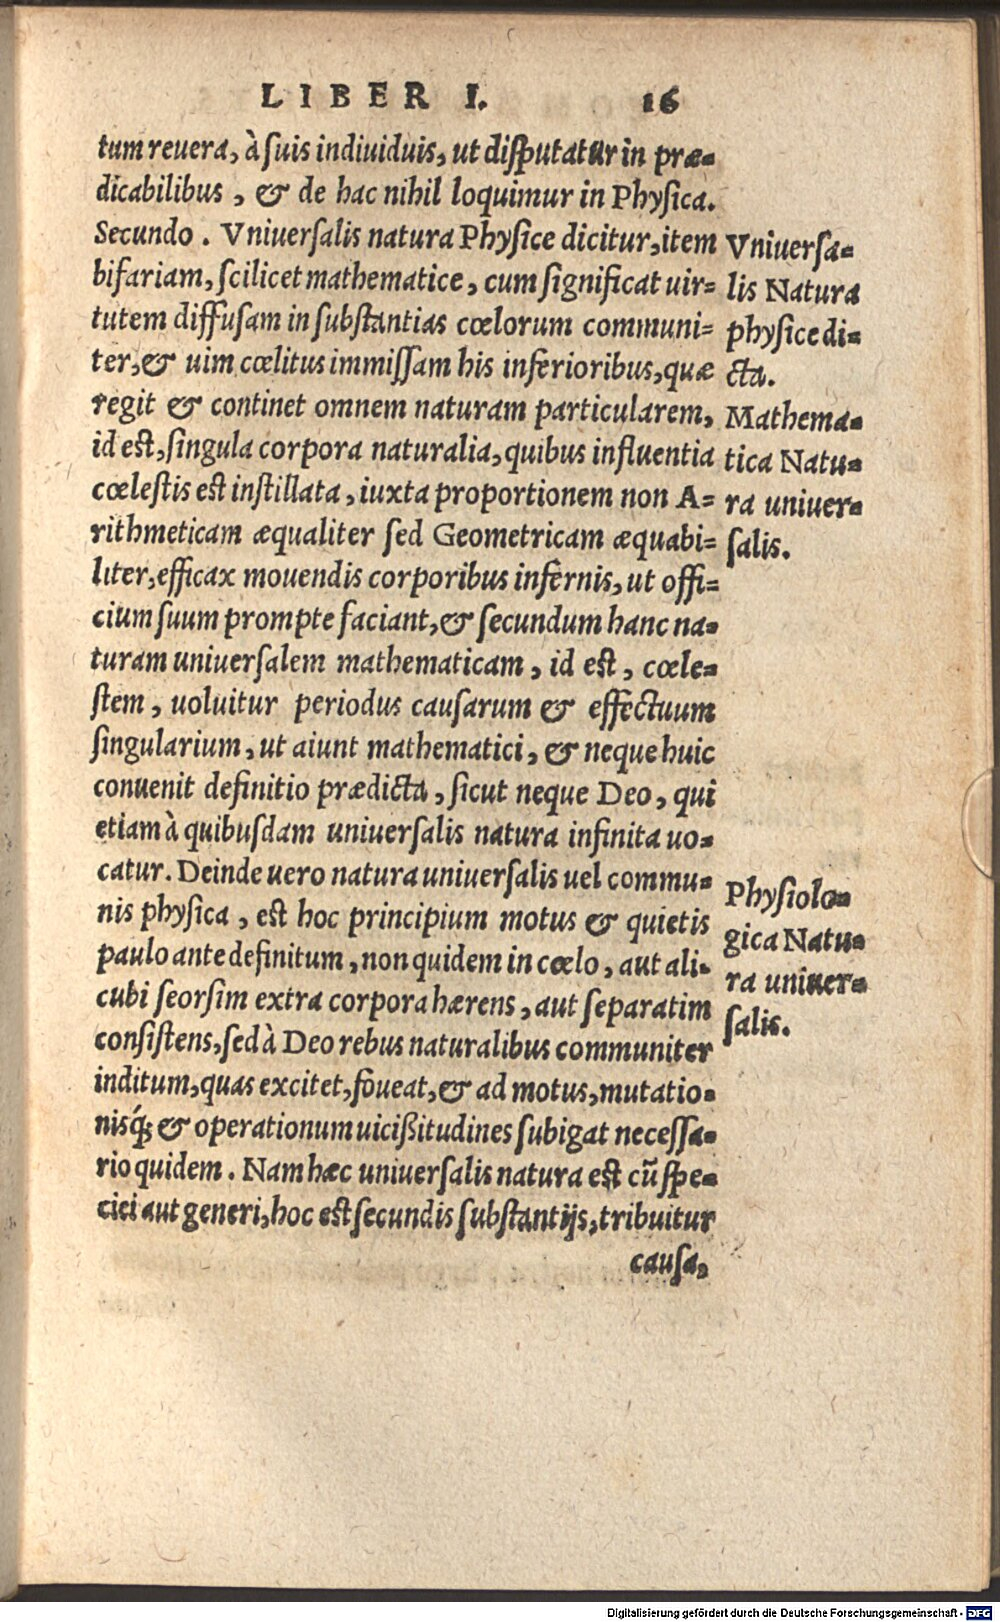 LIBER I. 16
tum reuera, à suis indiuiduis, ut disputatur in præ-
dicabilibus, & de hac nihil loquimur in Physica.
Secundo. Vniuersalis natura Physice dicitur, item
bifariam, scilicet mathematice, cum significat uir-
tutem diffusam in substantias cœlorum communi-
ter, & uim cœlitus immissam his inferioribus, quæ
regit & continet omnem naturam particularem,
id est, singula corpora naturalia, quibus influentia
cœlestis est instillata, iuxta proportionem non A-
rithmeticam æqualiter sed Geometricam æquabi-
liter, efficax mouendis corporibus infernis, ut offi-
cium suum prompte faciant, & secundum hanc na-
turam uniuersalem mathematicam, id est, cœle-
stem, uoluitur periodus causarum & effectuum
singularium, ut aiunt mathematici, & neque huic
conuenit definitio prædicta, sicut neque Deo, qui
etiam à quibusdam uniuersalis natura infinita uo-
catur. Deinde uero natura uniuersalis uel commu-
nis physica, est hoc principium motus & quietis
paulo ante definitum, non quidem in cœlo, aut ali-
cubi seorsim extra corpora hærens, aut separatim
consistens, sed à Deo rebus naturalibus communiter
inditum, quas excitet, foueat, & ad motus, mutatio-
nisq́; & operationum uicißitudines subigat necessa-
rio quidem. Nam hæc uniuersalis natura est cũ spe-
ciei aut generi, hoc est secundis substantijs, tribuitur
causa,
Vniuersa-
lis Natura
physice di-
cta.
Mathema-
tica Natu-
ra uniuer-
salis.
Physiolo-
gica Natu-
ra uniuer-
salis.
Digitalisierung gefördert durch die Deutsche Forschungsgemeinschaft - DFG